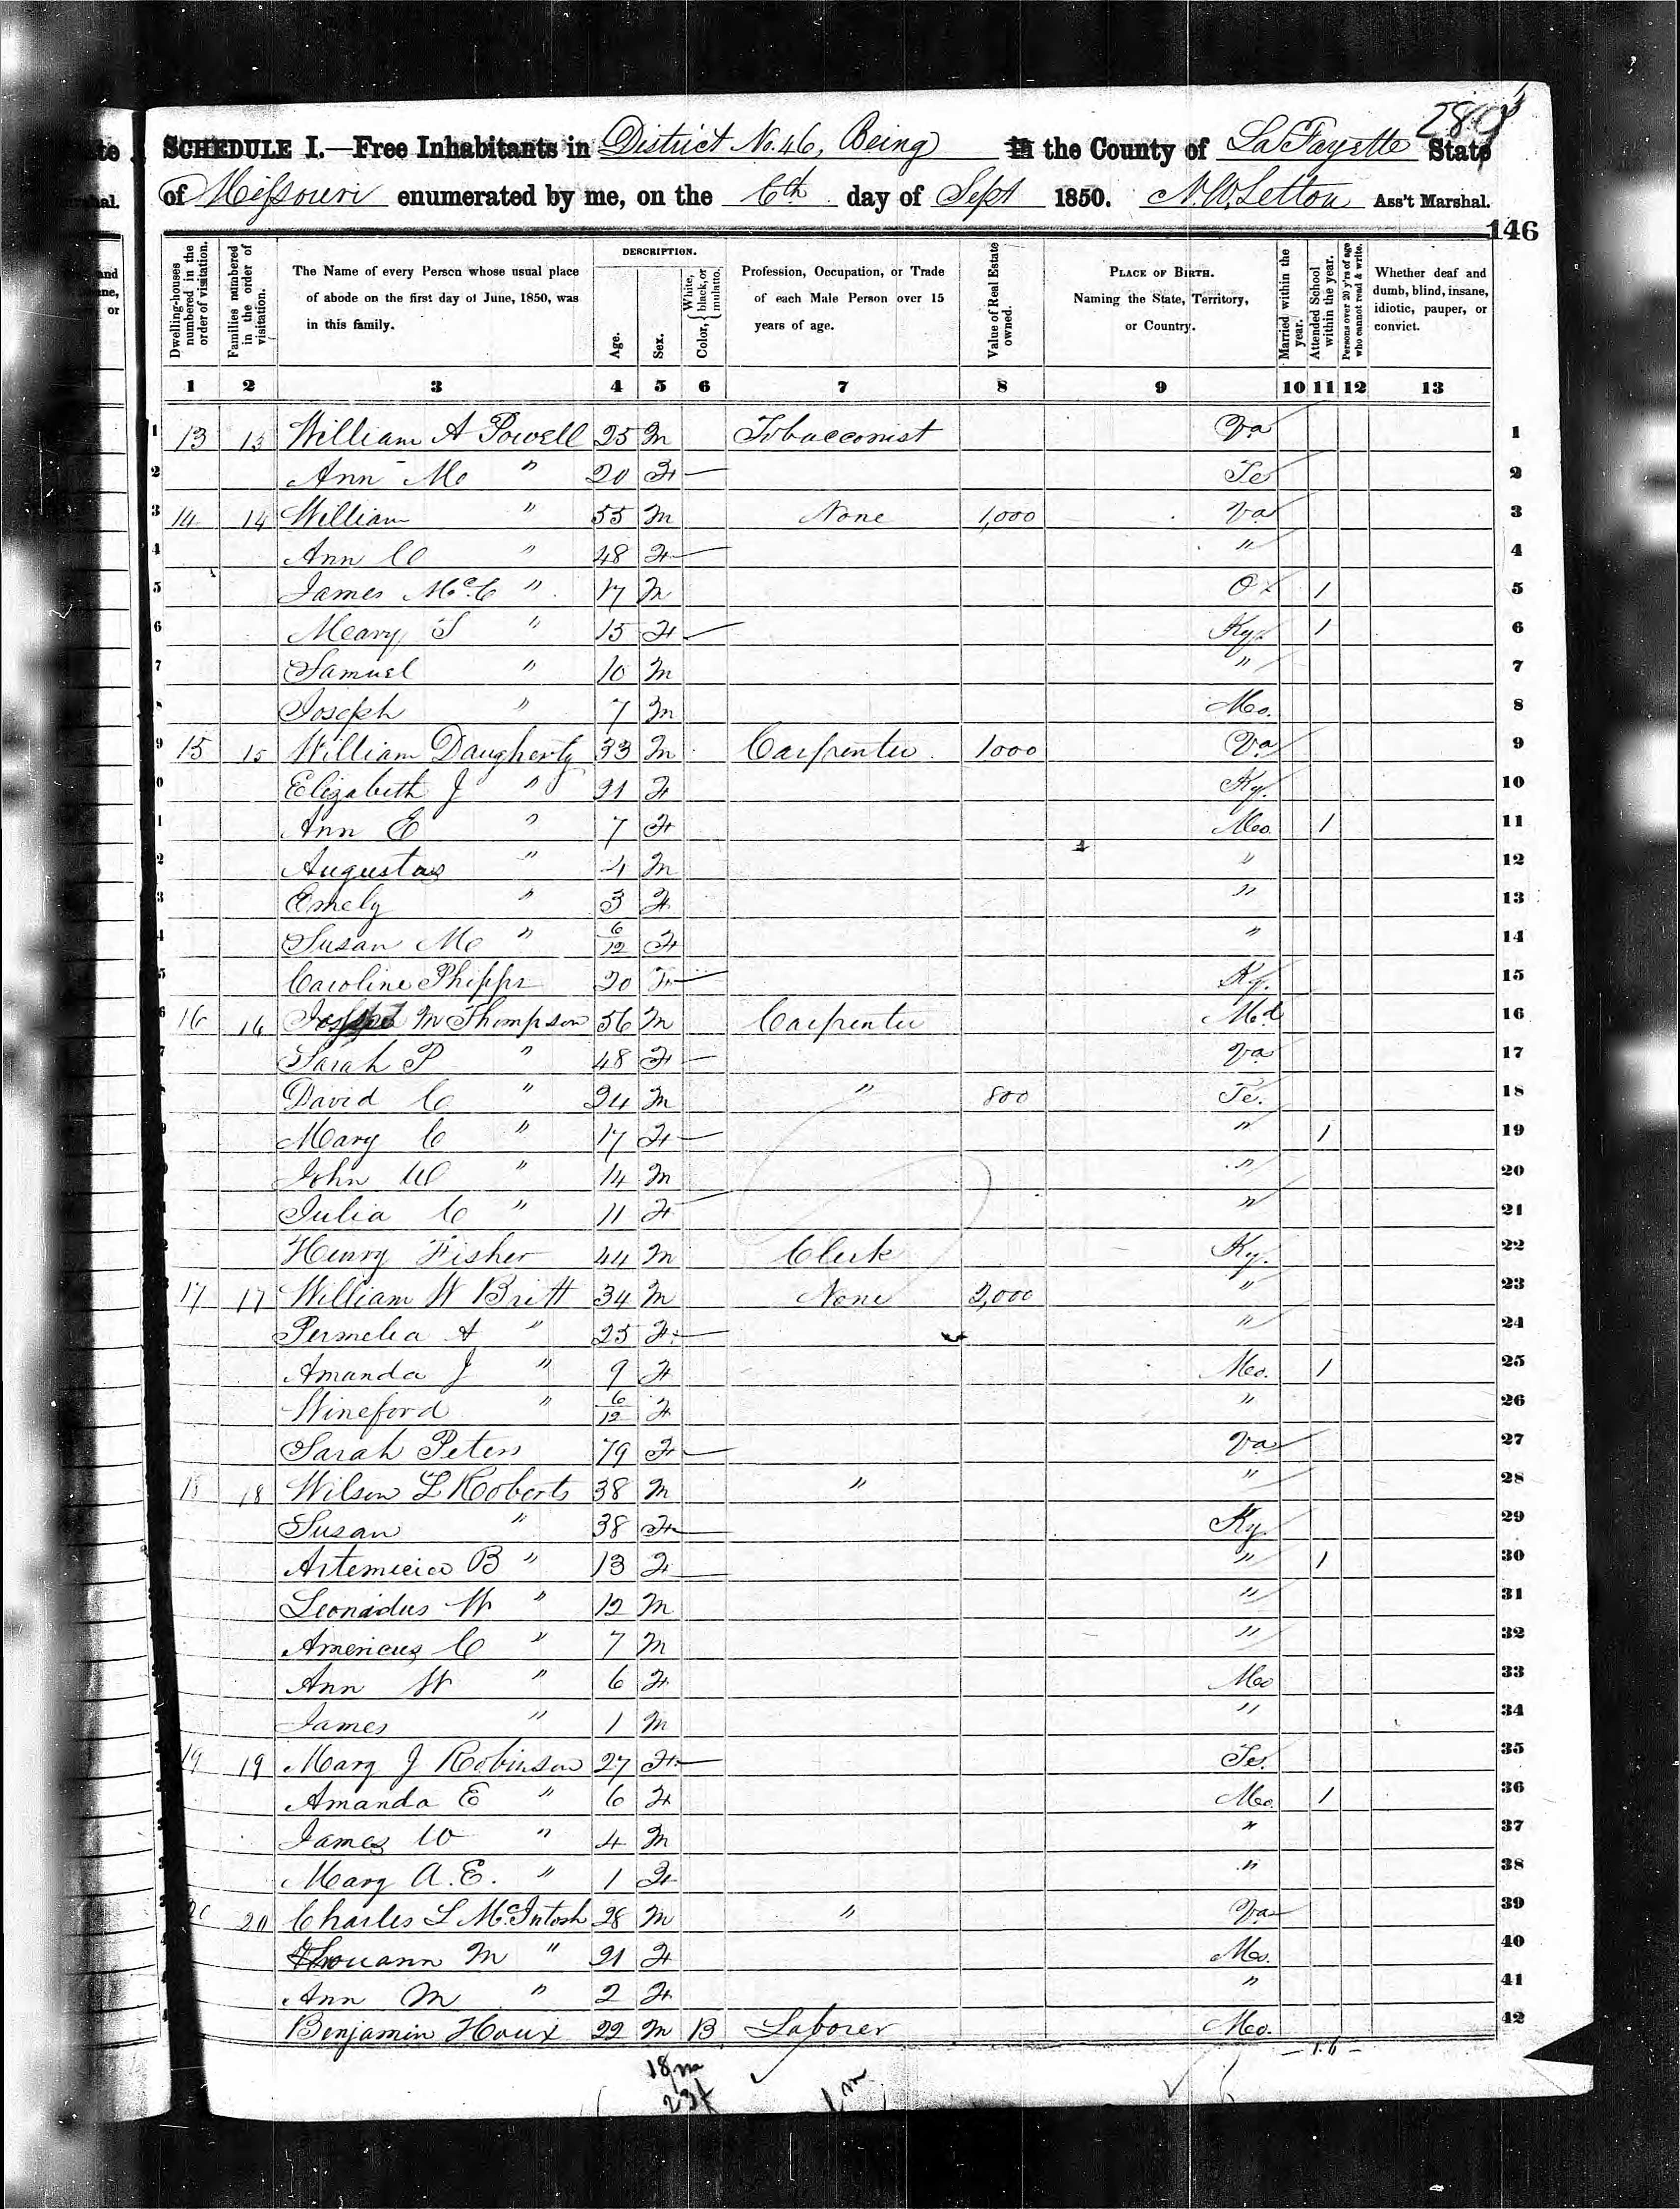 289
SCHEDULE I.—Free Inhabitants in District No. 46, Being in the County of La Fayette State
of Missouri enumerated by me, on the 6th day of Sept 1850. N. W. Letton Ass't Marshal.
146
Dwelling-houses numbered in the order of visitation.
Families numbered in the order of visitation.
The Name of every Person whose usual place of abode on the first day of June, 1850, was in this family.
DESCRIPTION.
Age.
Sex.
Color, { White, black, or mulatto.
Profession, Occupation, or Trade of each Male Person over 15 years of age.
Value of Real Estate owned.
PLACE OF BIRTH. Naming the State, Territory, or Country.
Married within the year.
Attended School within the year.
Persons over 20 y'rs of age who cannot read & write.
Whether deaf and dumb, blind, insane, idiotic, pauper, or convict.
1 2 3 4 5 6 7 8 9 10 11 12 13
1 13 13 William A Powell 25 M Tobacconist Va 1
2 Ann M " 20 F Te 2
3 14 14 William " 55 M None 1,000 Va 3
4 Ann C " 48 F " 4
5 James McC " 17 M O 1 5
6 Meary S " 15 F Ky. 1 6
7 Samuel " 10 M " 7
8 Joseph " 7 M Mo. 8
9 15 15 William Daugherty 33 M Carpenter 1000 Va 9
10 Elizabeth J " 21 F Ky. 10
11 Ann E " 7 F Mo. 1 11
12 Augustus " 4 M " 12
13 Emely " 3 F " 13
14 Susan M " 6/12 F " 14
15 Caroline Phipps 20 F Ky. 15
16 16 16 M Thompson 56 M Carpenter Md 16
17 Sarah P " 48 F Va 17
18 David C " 24 M " 800 Te. 18
19 Mary C " 17 F " 1 19
20 John W " 14 M " 20
21 Julia C " 11 F " 21
22 Henry Fisher 44 M Clerk Ky. 22
23 17 17 William W Britt 34 M None 2,000 " 23
24 Permelia A " 25 F " 24
25 Amanda J " 9 F Mo. 1 25
26 Wineford " 6/12 F " 26
27 Sarah Peters 79 F Va 27
28 18 18 Wilson L Roberts 38 M " " 28
29 Susan " 38 F Ky. 29
30 Artemicia B " 13 F " 1 30
31 Leonidus W " 12 M " 31
32 Americus C " 7 M " 32
33 Ann W " 6 F Mo 33
34 James " 1 M " 34
35 19 19 Mary J Robinson 27 F Te. 35
36 Amanda E " 6 F Mo. 1 36
37 James W " 4 M " 37
38 Mary A. E. " 1 F " 38
39 20 20 Charles L McIntosh 28 M " Va 39
40 M " 21 F Mo. 40
41 Ann M " 2 F " 41
42 Benjamin Houx 22 M B Laborer Mo. 42
18m
23f
1 m